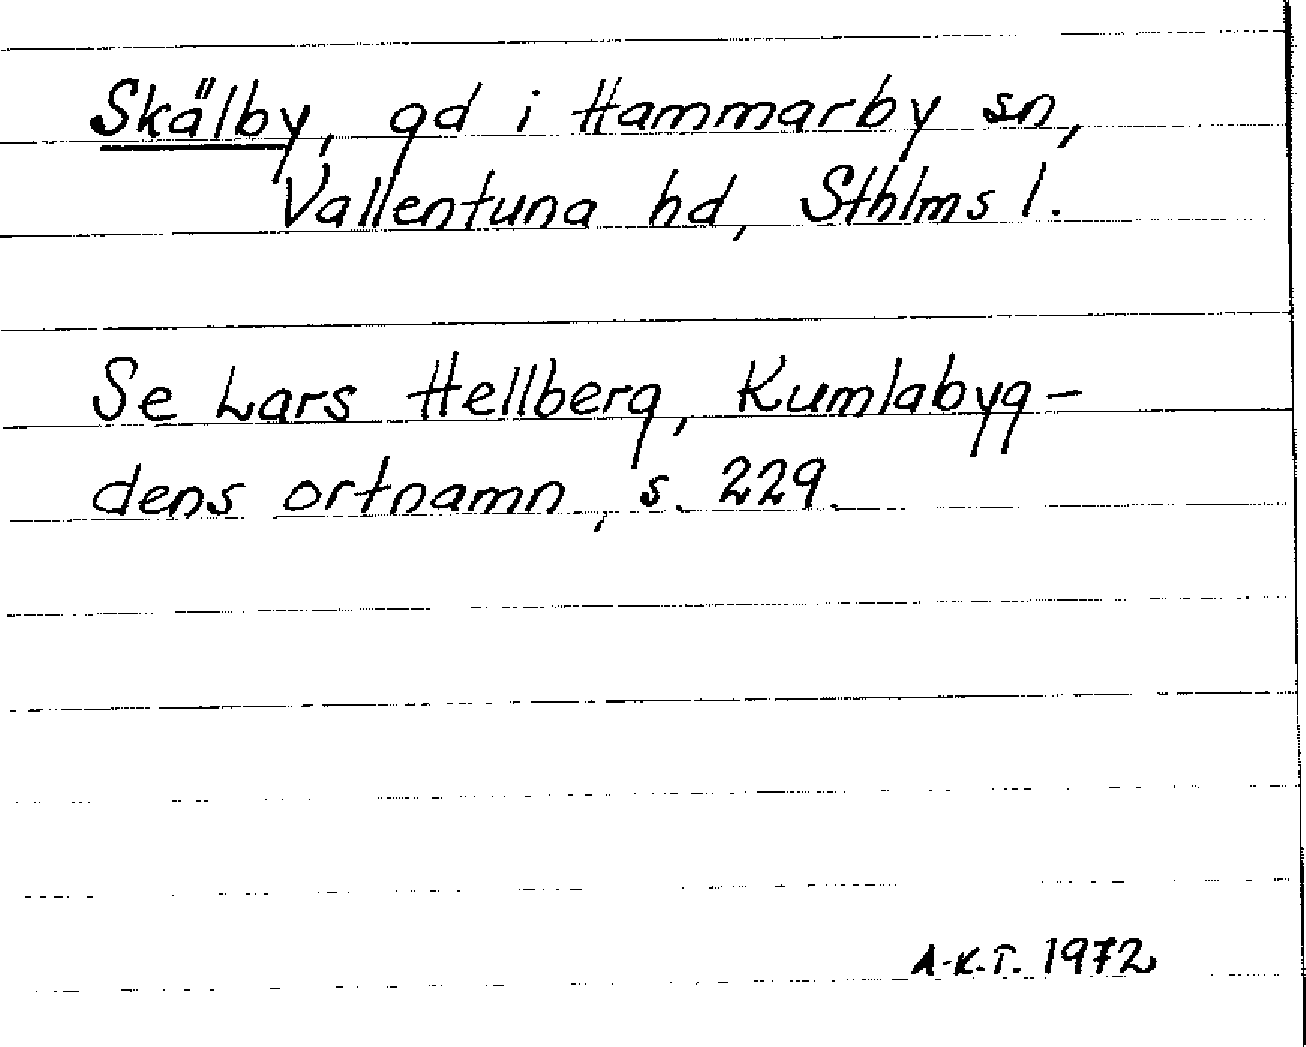 Skälby, gd i Hammarby sn,
Vallentuna hd, Sthlms l.
Se Lars Hellberg, Kumlabyg-
dens ortnamn, s. 229.
A-K.T. 1972